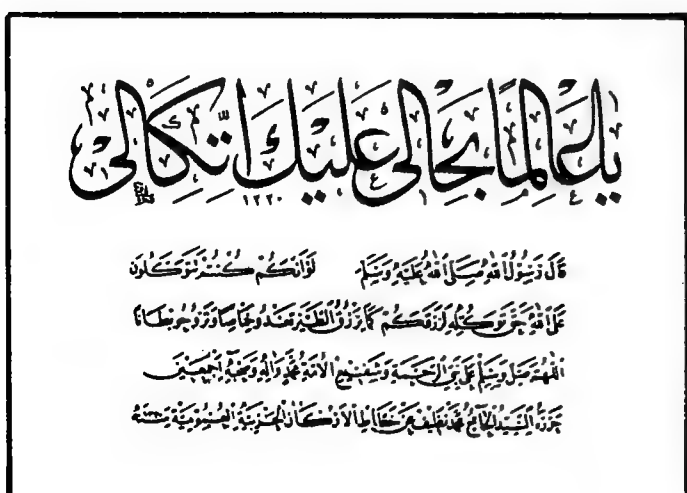 يا عالما بحالي عليك اتكالي
١٢٢٠
قال رسول الله صلى الله عليه وسلم لو أنكم كنتم توكلون
على الله حق توكله لرزقكم كما يرزق الطير تغدو خماصا وتروح بطانا
اللهم صل وسلم على نبي الرحمة وشفيع الأمة محمد وآله وصحبه أجمعين
حرره السيد الحاج محمد نظيف عن خطاط الأركان الحربية العمومية سنة